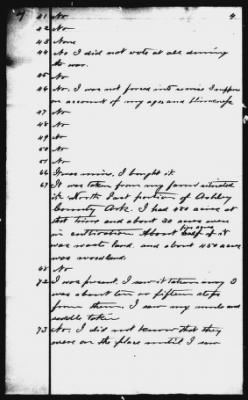 4
41 No
42 No
43 None
44 No I did not vote at all during
the war.
45 No
46 No. I was not forced into service I suppose
on account of my age and
47 No
48 No
49 No
50 No
51 No
66 It was mine. I bought it
67 It was taken from my farm situated
in North East portion of Ashley
County Ark. I had 480 acres at
that time and about 30 acres were
in cultivation. About half of it
was waste land. and about 450 acres
was woodland.
68 No
72 I was present. I saw it taken away I
was about ten or fifteen steps
from them. I saw my mule and
saddle taken
73 No. I did not know that they
were on the place until I saw